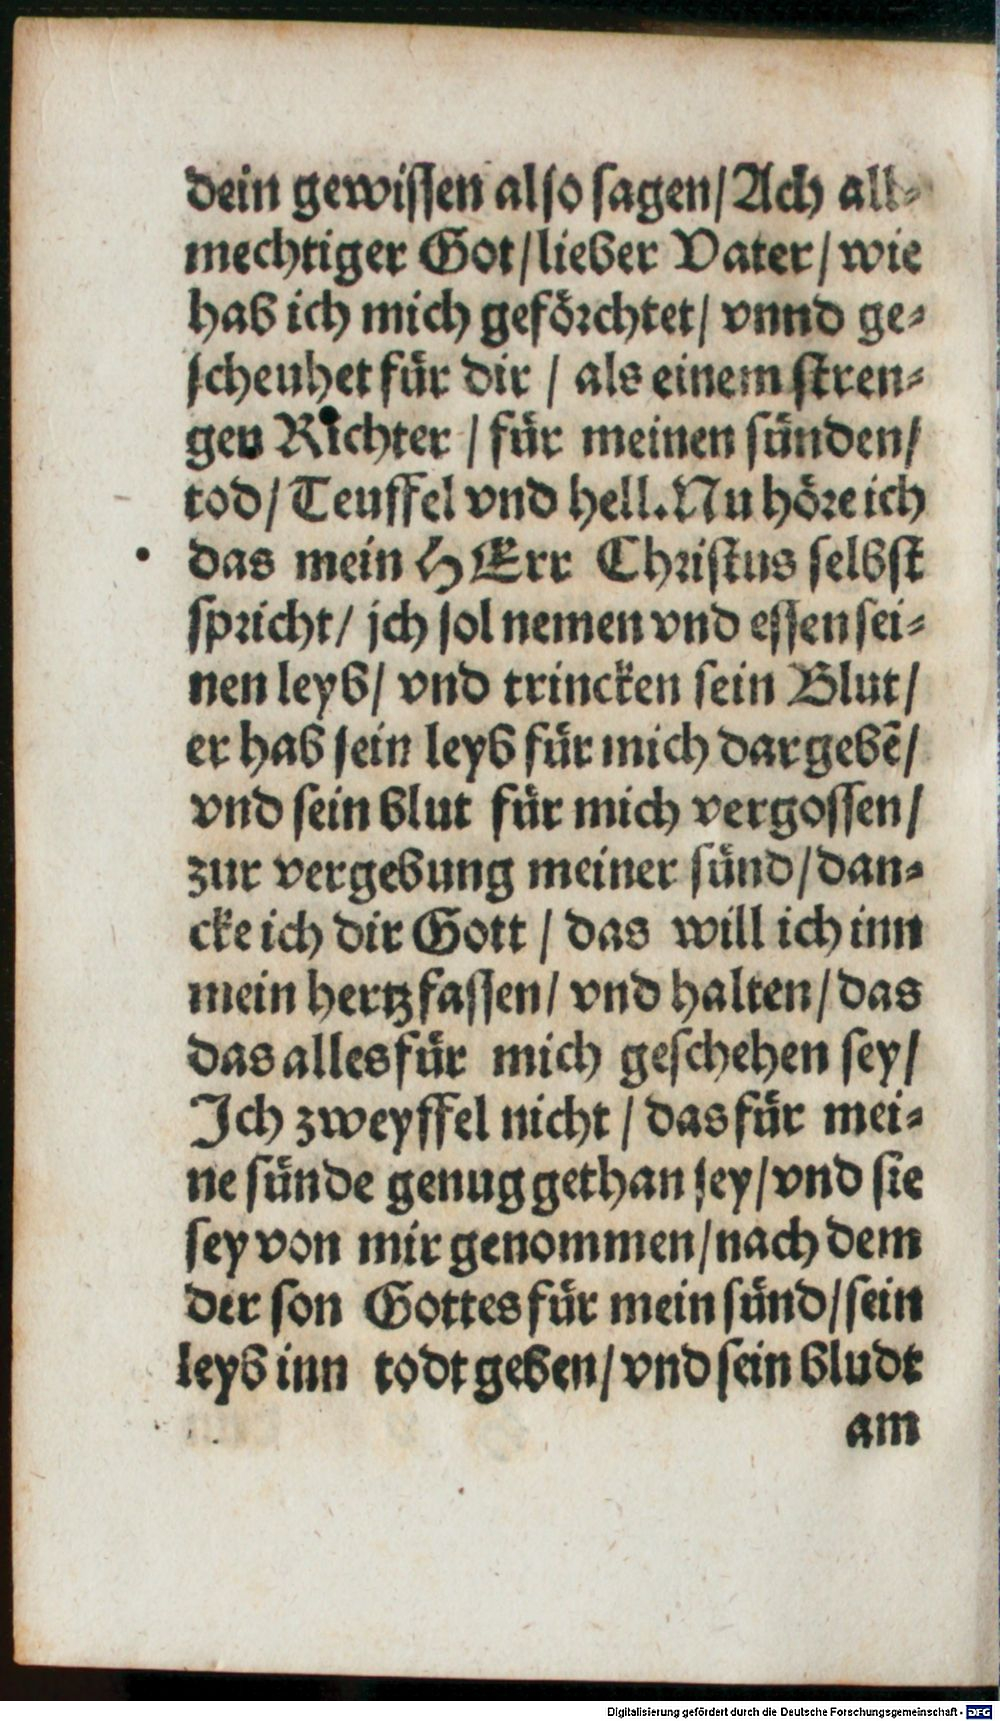 dein gewiſſen alſo ſagen/ Ach all⸗
mechtiger Got/ lieber Vater/ wie
hab ich mich gefoͤrchtet/ vnnd ge⸗
ſcheuhet fuͤr dir / als einem ſtren⸗
gen Richter / fuͤr meinen ſuͤnden/
tod/ Teuffel vnd hell. Nu hoͤre ich
das mein HErr Chriſtus ſelbſt
ſpricht/ jch ſol nemen vnd eſſen ſei⸗
nen leyb/ vnd trincken ſein Blut/
er hab ſein leyb fuͤr mich dargebẽ/
vnd ſein blut fuͤr mich vergoſſen/
zur vergebung meiner ſuͤnd/ dan⸗
cke ich dir Gott / das will ich inn
mein hertz faſſen/ vnd halten/ das
das alles fuͤr mich geſchehen ſey/
Ich zweyffel nicht / das fuͤr mei⸗
ne ſuͤnde genug gethan ſey/ vnd ſie
ſey von mir genommen/ nach dem
der ſon Gottes fuͤr mein ſuͤnd/ ſein
leyb inn todt geben/ vnd ſein bludt
am
Digitalisierung gefördert durch die Deutsche Forschungsgemeinschaft - DFG